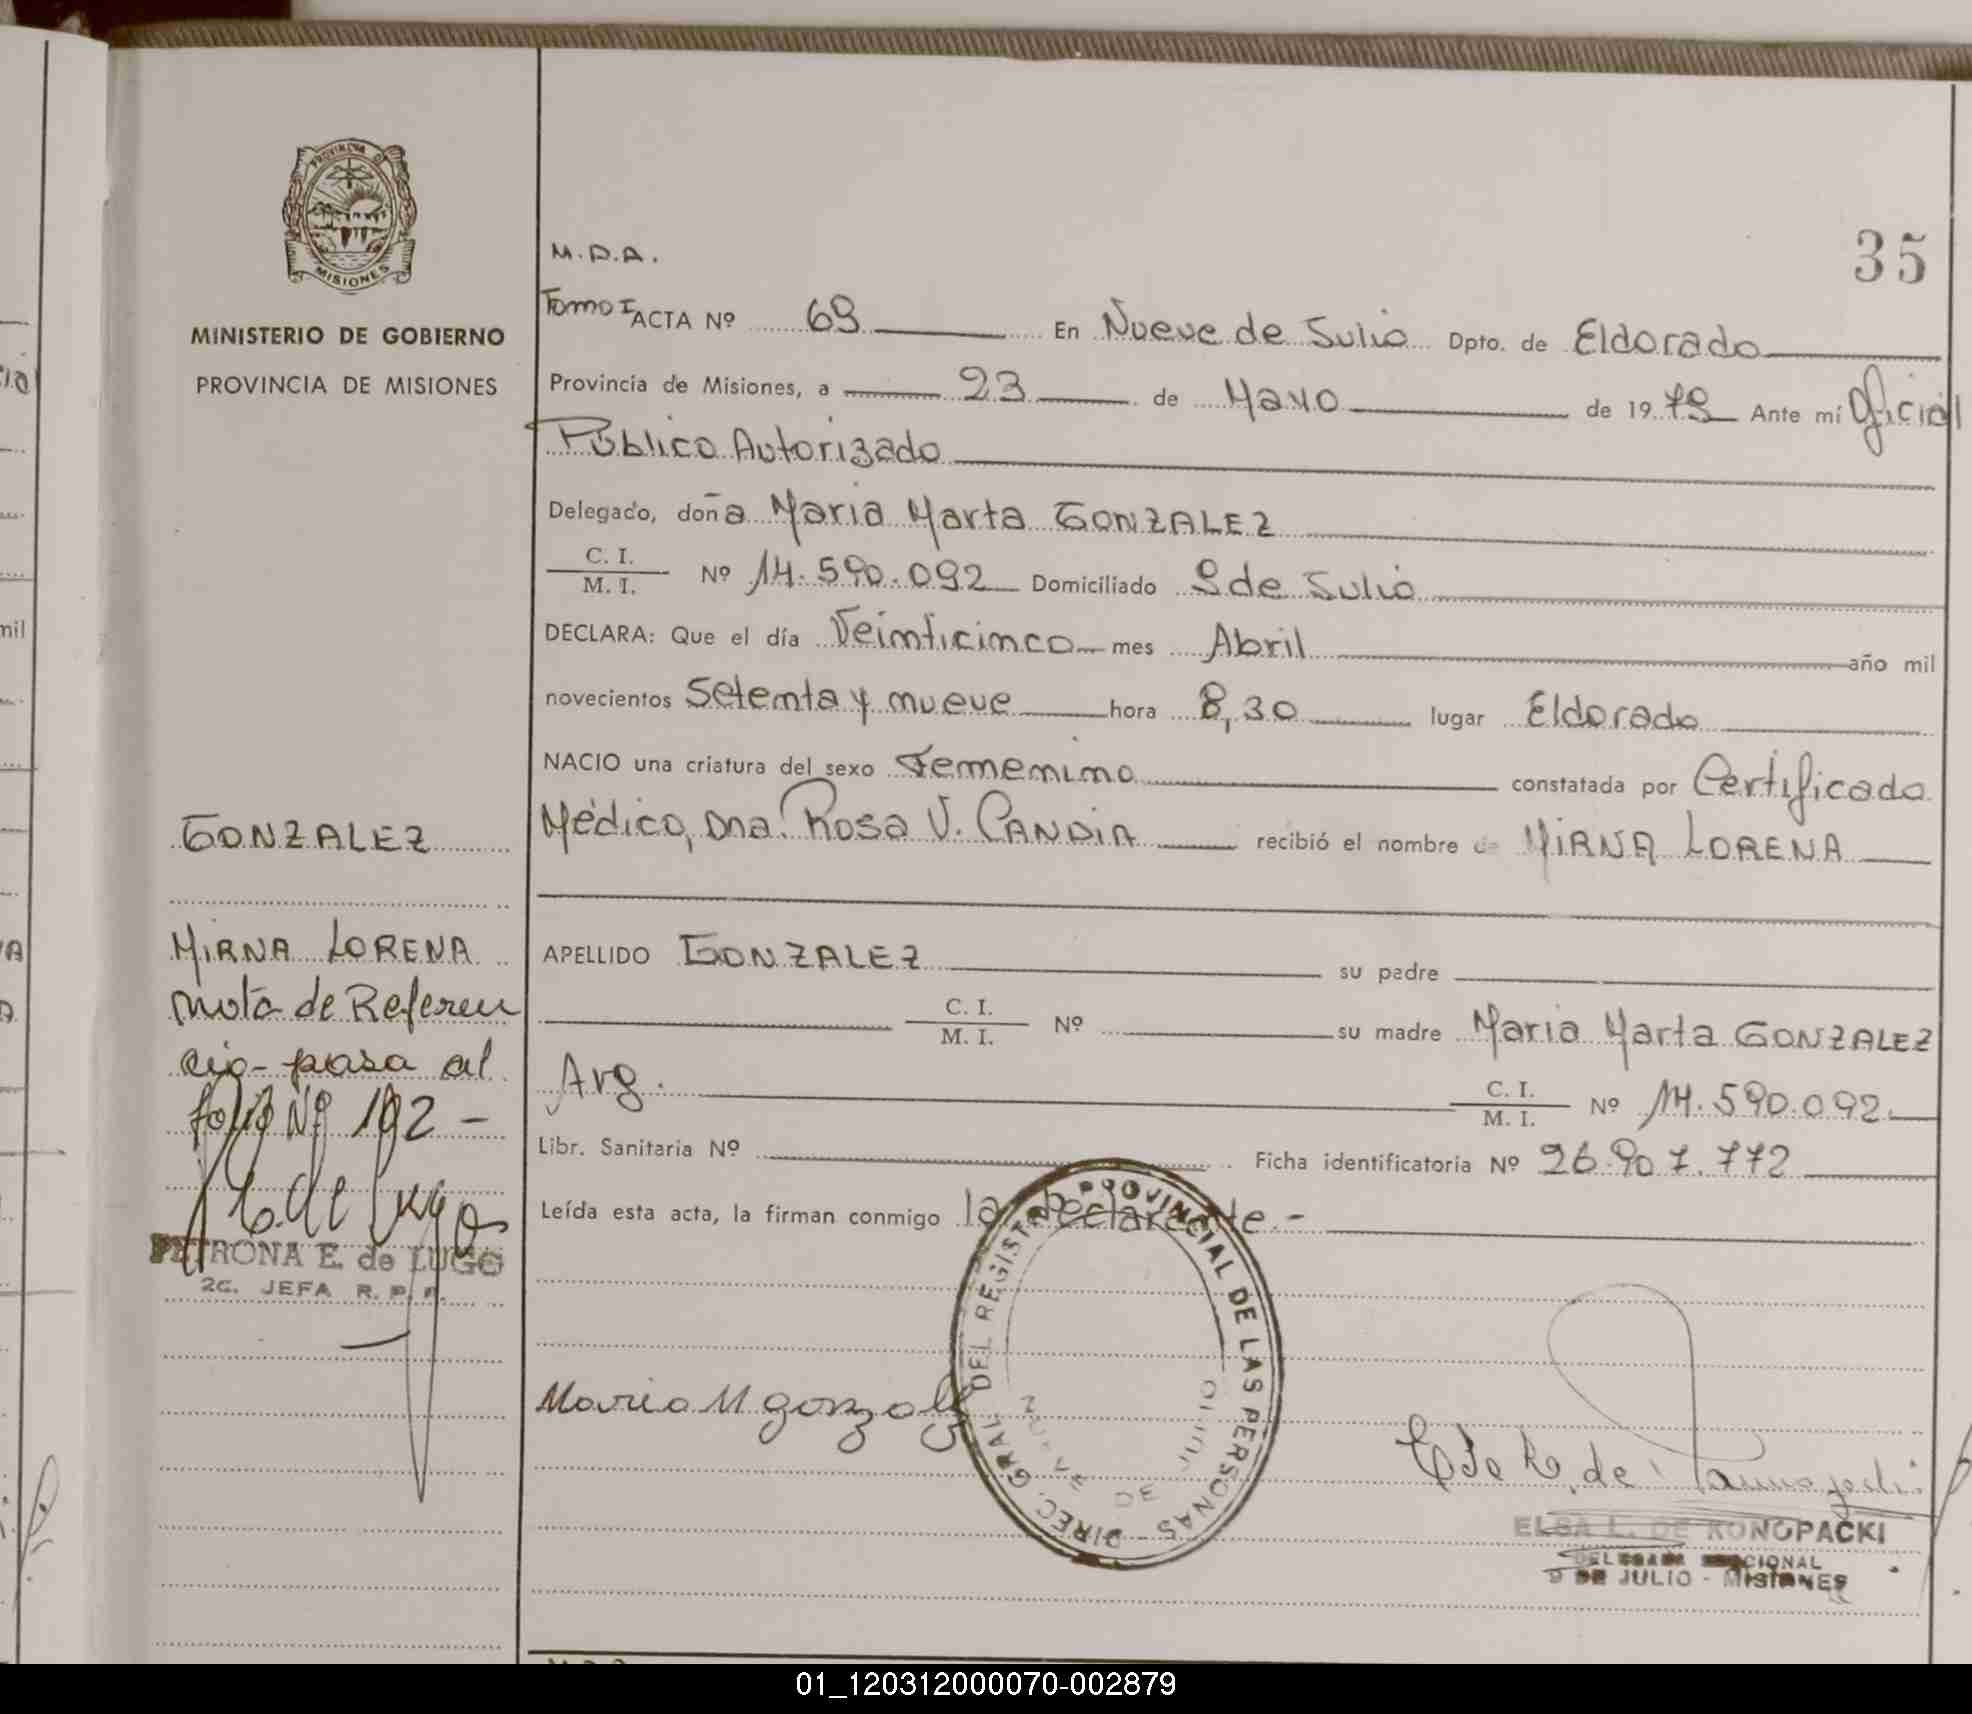 PROVINCIA DE
MISIONES
MINISTERIO DE GOBIERNO
PROVINCIA DE MISIONES
35
M.D.A.
Tomo I ACTA Nº 69 En Nueve de Julio Dpto. de Eldorado
Provincia de Misiones, a 23 de Mayo de 1979 Ante mí Oficial
Público Autorizado
Delegado, doña Maria Marta GONZALEZ
C. I.
M. I. Nº 14.590.092 Domiciliado 9 de Julio
DECLARA: Que el día Veinticinco mes Abril año mil
novecientos Setenta y nueve hora 8,30 lugar Eldorado
NACIO una criatura del sexo Femenino constatada por Certificado
Médico, Dna. Rosa V. CANDIA recibió el nombre de MIRNA LORENA
APELLIDO GONZALEZ su padre
C. I.
M. I. Nº su madre Maria Marta GONZALEZ
Arg. C. I.
M. I. Nº 14.590.092
Libr. Sanitaria Nº Ficha identificatoria Nº 26.907.772
Leída esta acta, la firman conmigo la declarante.-
GONZALEZ
MIRNA LORENA
nota de Referen
cia- pasa al
folio Nº 192 -
E. de Lugo
PETRONA E. de LUGO
2c. JEFA R. P. P.
Maria M gonzalez
DIREC. GRAL DEL REGISTRO PROVINCIAL DE LAS PERSONAS
DE JULIO
ELSA L. DE KONOPACKI
DELEGADA SECCIONAL
9 DE JULIO - MISIONES
01_120312000070-002879